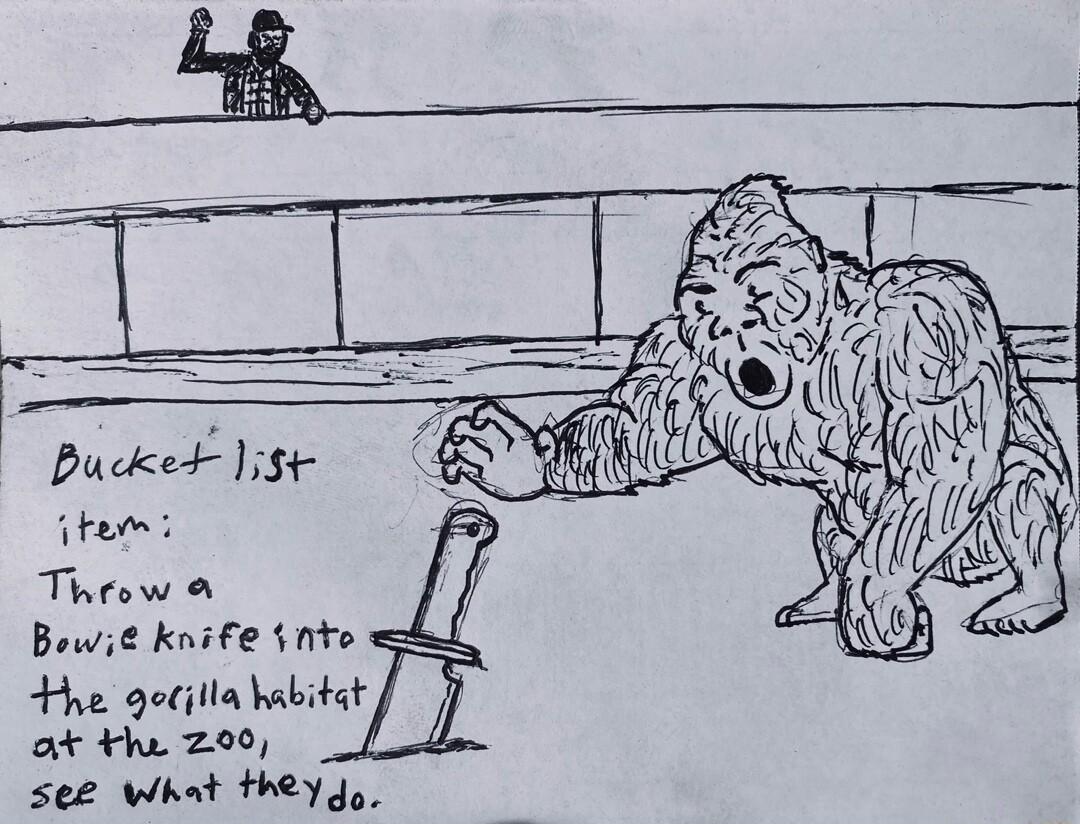 Bucket list
item:
Throw a
Bowie knife into
the gorilla habitat
at the zoo,
see what they do.